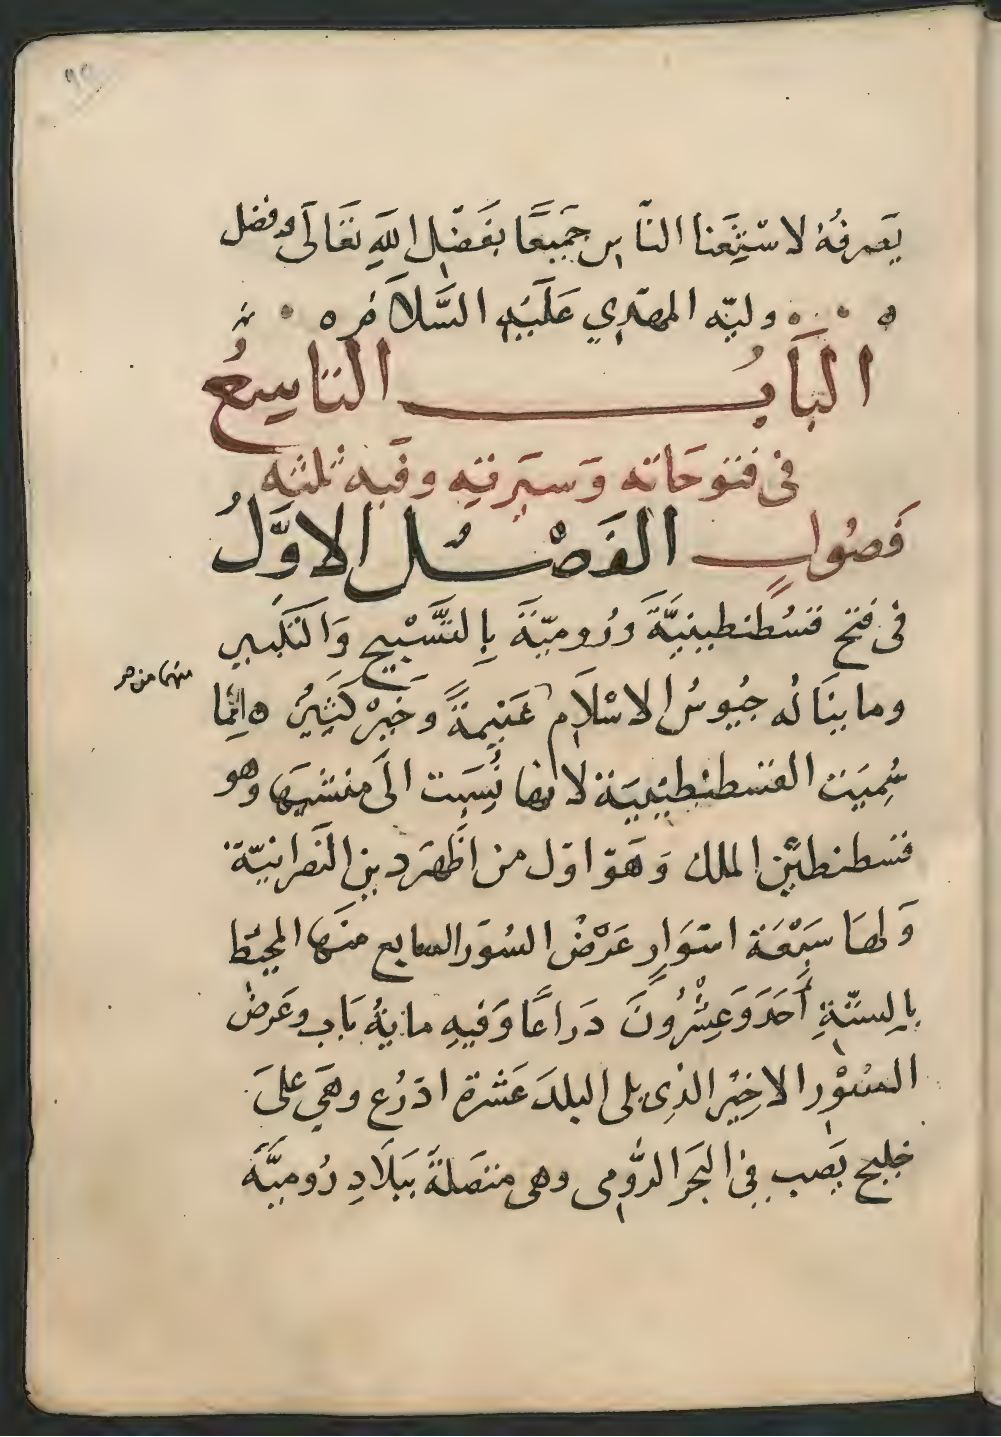 ٩٥
يَعرفهُ لاسْتِغنا النّاس جَميعًا بفَضْل اللهِ تعَالى وفضل
وليّه المهْدي عَلَيْهِ السَّلاَمُ ٥
البَابُ التاسِعُ
في فتوحَاته وَسيَرته وفَيه ثلثه
فَصُولٍ الفَصْلُ الاوَّلُ
فى فتح قسُطنطينيَّةَ ورُوميّةَ بِالتَّسْبيح وَالتَكبير
وما ينَالهُ جيُوسُ الاسْلاَم غَنيمةً وَخَيرْ كثيرُ ٥ انّما
منهما من
سُميَت القسطنطينيَة لانها نُسِبَت الى منشيهَا وهو
قسطنطيْن الملك وَهَوَ اوّل من اظَهَر دين النَصرانيّة
وَلهَا سَبْعَة اسوَارٍ عَرْضُ السُوَر السابع منهَا المحيَط
بالِستّةِ أَحَدَ وَعِشْرُونَ دَراعًا وَفيهِ مايةُ بَاب وعَرضُ
السُوْر الاخيْر الذِى يلى البلدَ عَشرة ادرُع وهيَ علىَ
خليج يَصِب فى البَحَر الرُّومى وهى متصَلةً ببَلاَدِ رُوميَّةَ